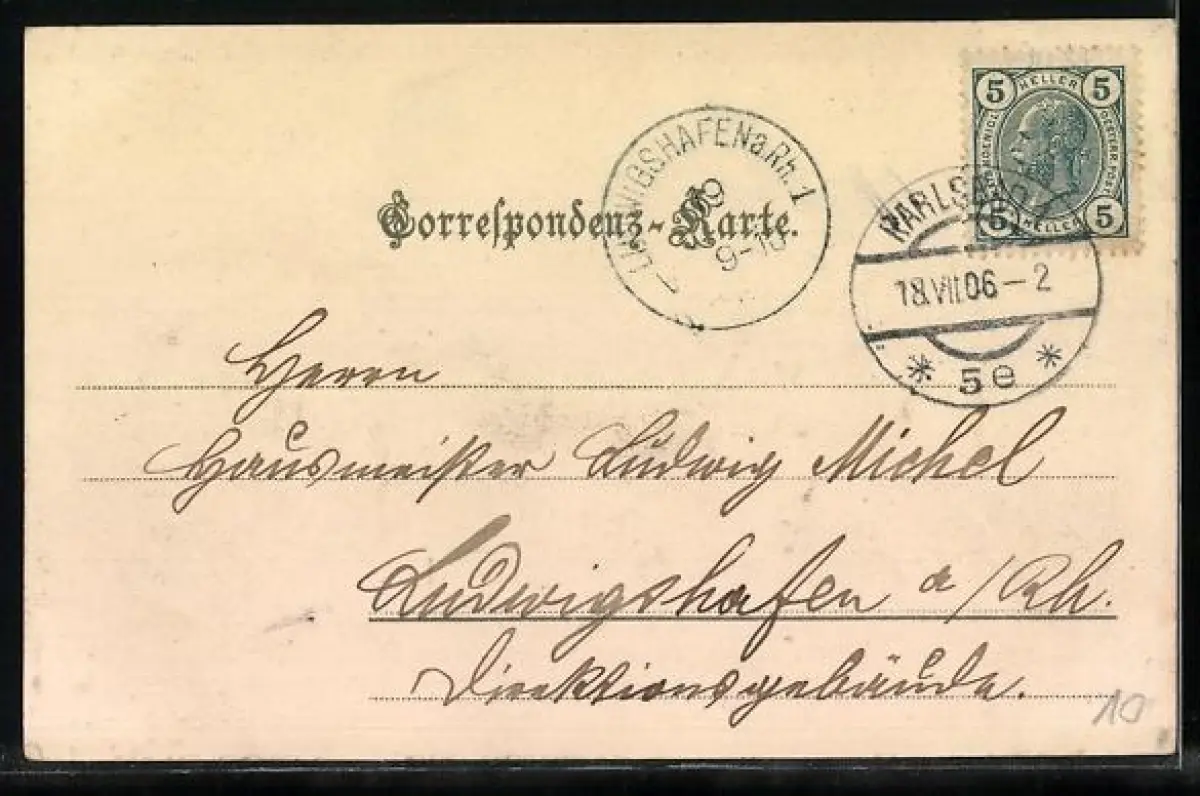 5 HELLER 5
5 HELLER 5
KARLSBAD
18.VII.06-2
* 5e *
LUDWIGSHAFEN a. Rh. 1
9-10
Correspondenz-Karte.
Herrn
Hausmeister Ludwig Michel
Ludwigshafen a/Rh.
Direktionsgebäude.
10